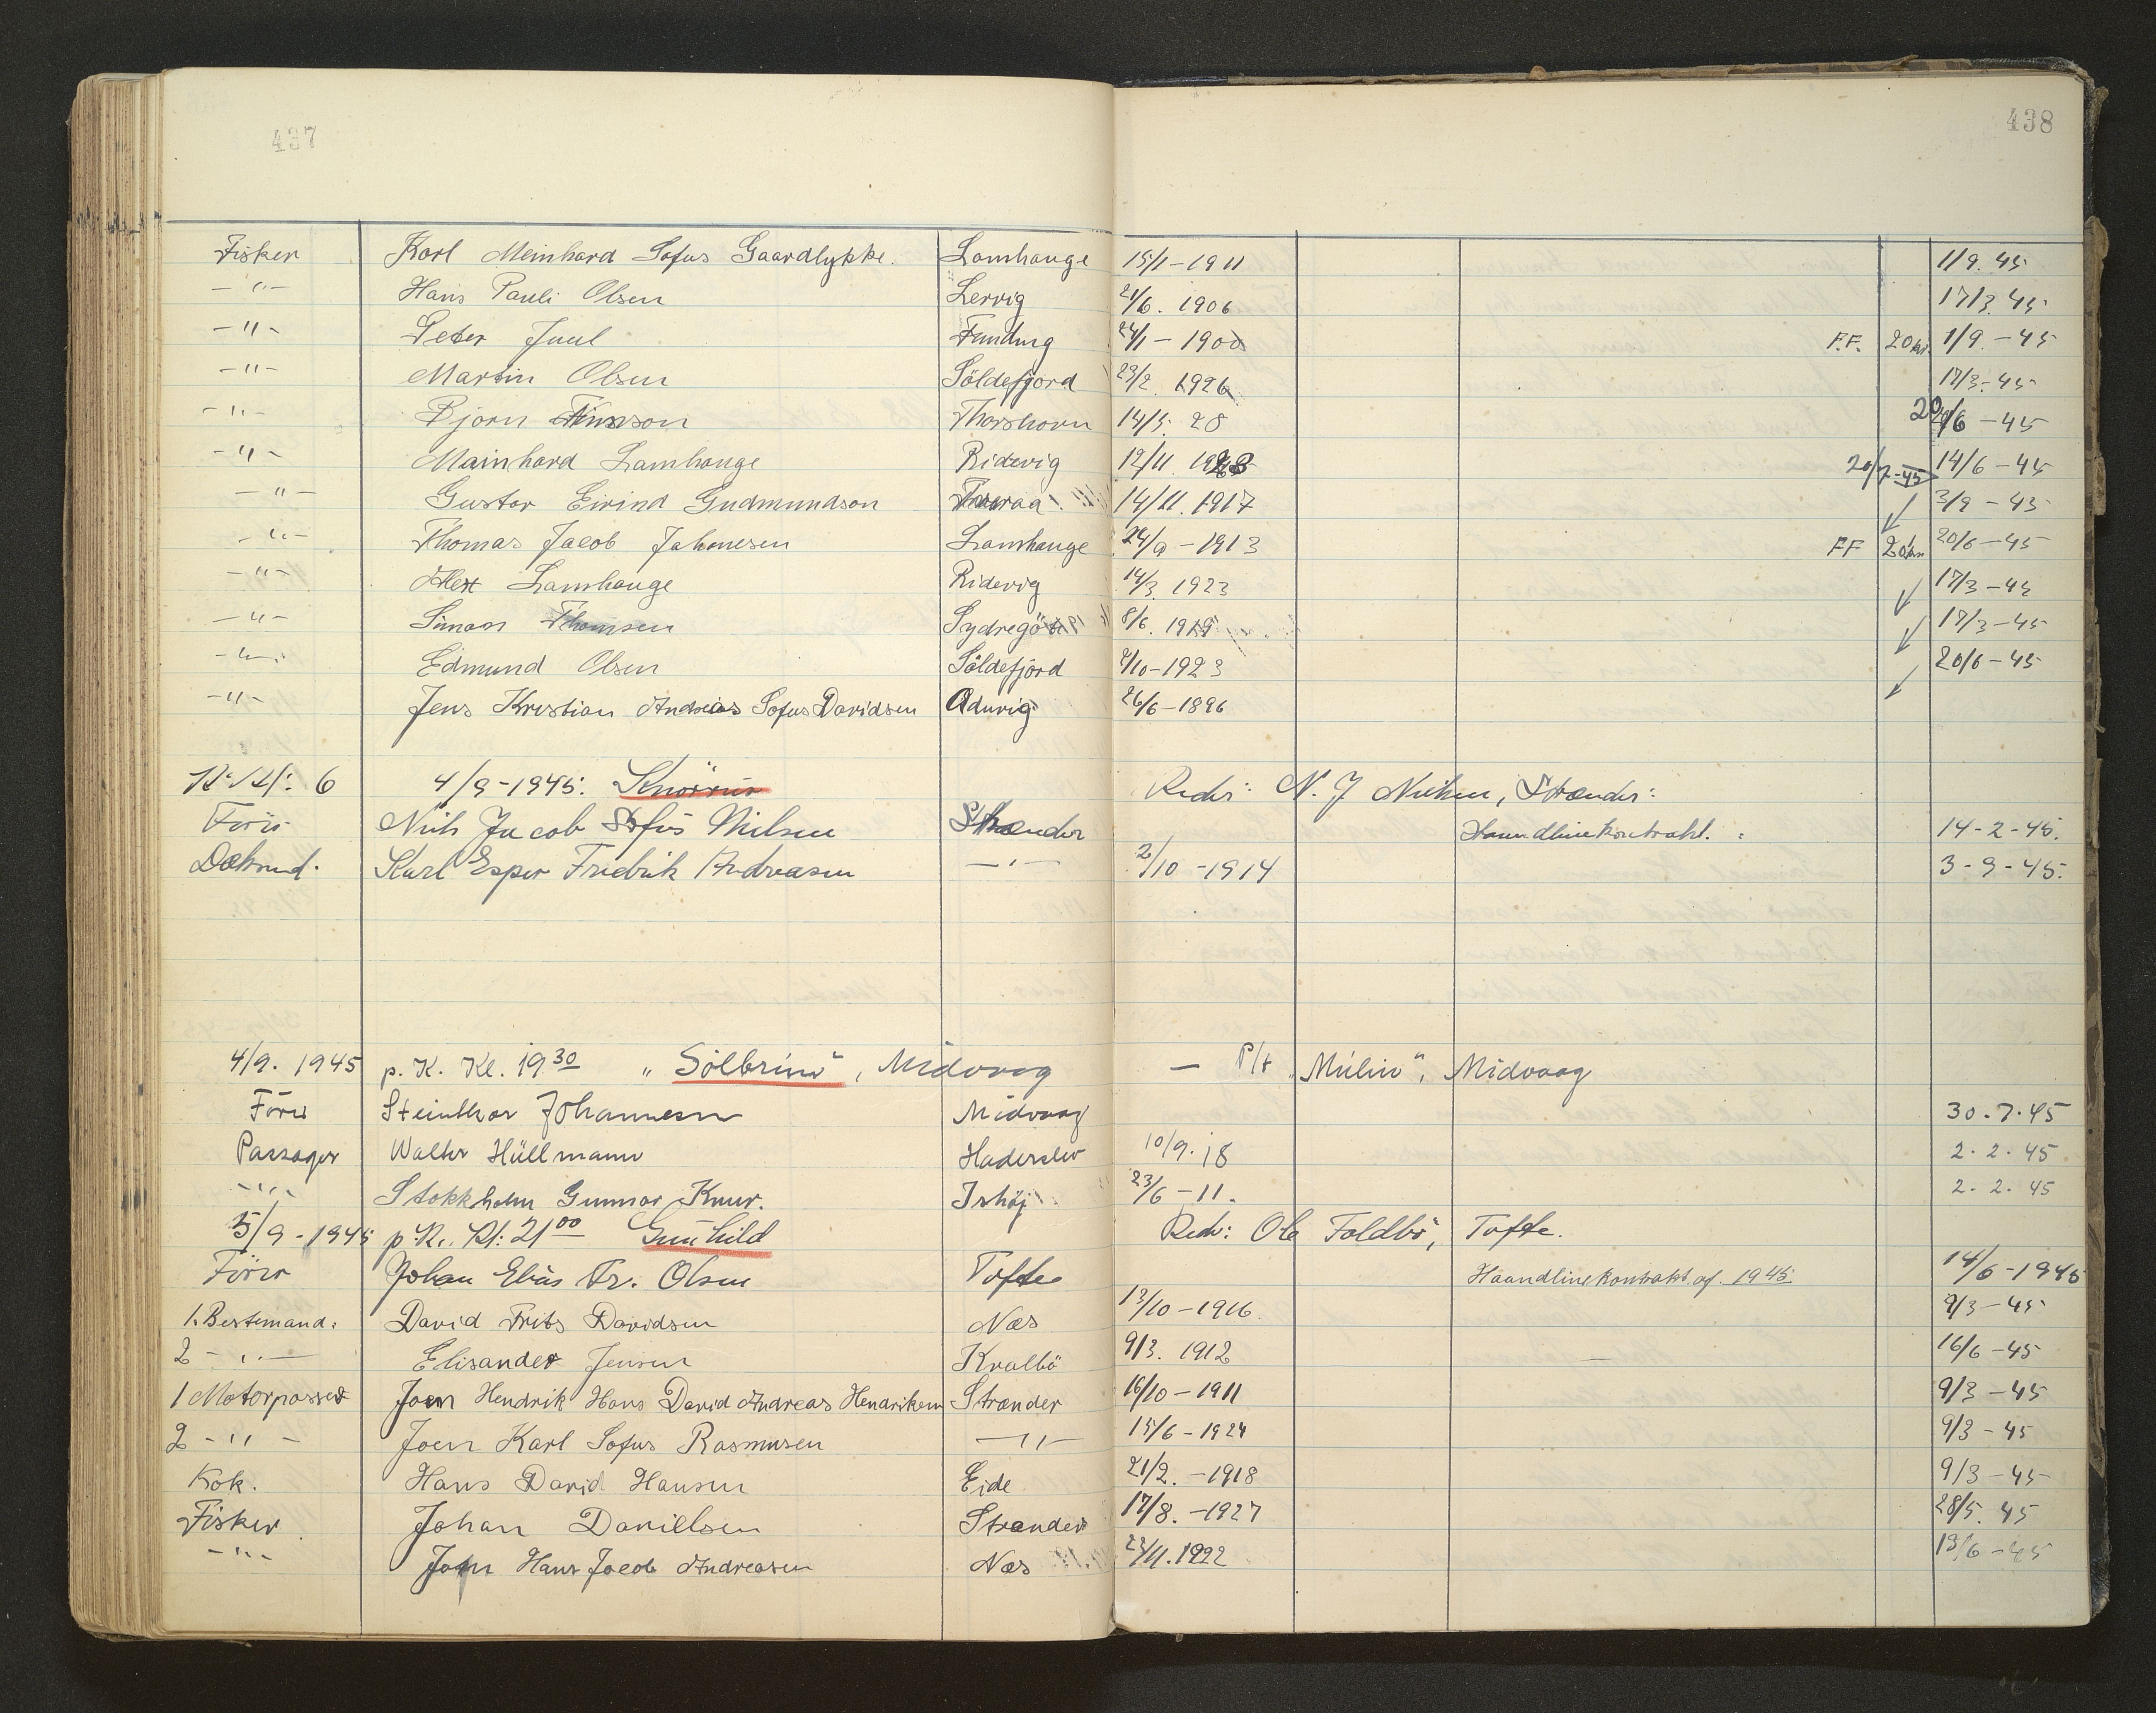 437 438
Fisker Karl Meinhard Sofus Gaardlykke. Lamhauge 15/1-1911 1/9. 45
-"- Hans Pauli Olsen Lervig 21/6. 1906 17/3. 45
-"- Peter Juul Funding 24/1 - 1900 F.F. 20 kr. 1/9 - 45
-"- Martin Olsen Söldefjord 23/2. 1926 17/3. 45
-"- Bjørn Thorshavn 14/5. 28 /6 - 45
-"- Mainhard Lamhauge Ridevig 12/11. 20/7-45 14/6 - 45
-"- Gustav Eirind Gudmundson 14/11. 1917 3/9 - 45
-"- Thomas Jacob Johanesen Lamhauge 24/9 - 1913 FF 20 kr 20/6 - 45
-"- Alex Lamhauge Ridevig 14/3. 1923 17/3 - 45
-"- Simon Thomsen 8/6. 17/3 - 45
-"- Edmund Olsen Söldefjord /10-1923 20/6 - 45
-"- Jens Kristian Andreas Sofus Davidsen Aduvig 26/6-1896
Kl: 6 4/9-1945: Reder: N. J. Nielsen, Strender:
Förer Niels Jacob Sofus Nielsen Strender Haandlinekontrakt. 14-2-45.
Karl Esper Fredrik Andreasen -"- 2/10 - 1914 3-9-45.
4/9. 1945 p. K. Kl. 19 30 „Sólbrúnˮ, Midvaag - P/f „Múlinˮ, Midvaag
Förer Steinthor Johannesen Midvaag 30.7.45
Passager Walter Hüllmann Haderslev 10/9. 18 2. 2. 45
-"- Stokkholm Gunnar Knur. Ishöj 23/6 - 11. 2. 2. 45
5/9 - 1945 p. K. Kl: 21 00 Gunhild Reder: Ole Foldbö, Tofte.
Förer Johan Elias Fr. Olsen Tofte Haandlinekontrakt af 1945. 14/6-1945
1. Bestemand: David Frits Davidsen Næs 13/10 - 1916 9/3 - 45
2 - " - Elisander Jensen Kvalbö 9/3. 1912 16/6 - 45
1 Motorpasser Joen Hendrik Hans David Andreas Hendriksen Strænder 16/10 - 1911 9/3 - 45
2 - " - Joen Karl Sofus Rasmusen -"- 15/6 - 1924 9/3 - 45
Kok. Hans David Hansen Eide 21/2. - 1918 9/3 - 45
Fisker Johan Danielsen Strænder 17/8. - 1927 28/5. 45
-"- John Hans Jacob Andreasen Næs 23/11. 1922 13/6 - 45